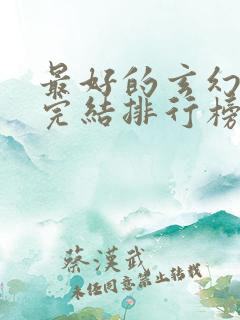 最好的玄幻
完結排行榜
蔡漢武
未經同意禁止轉載